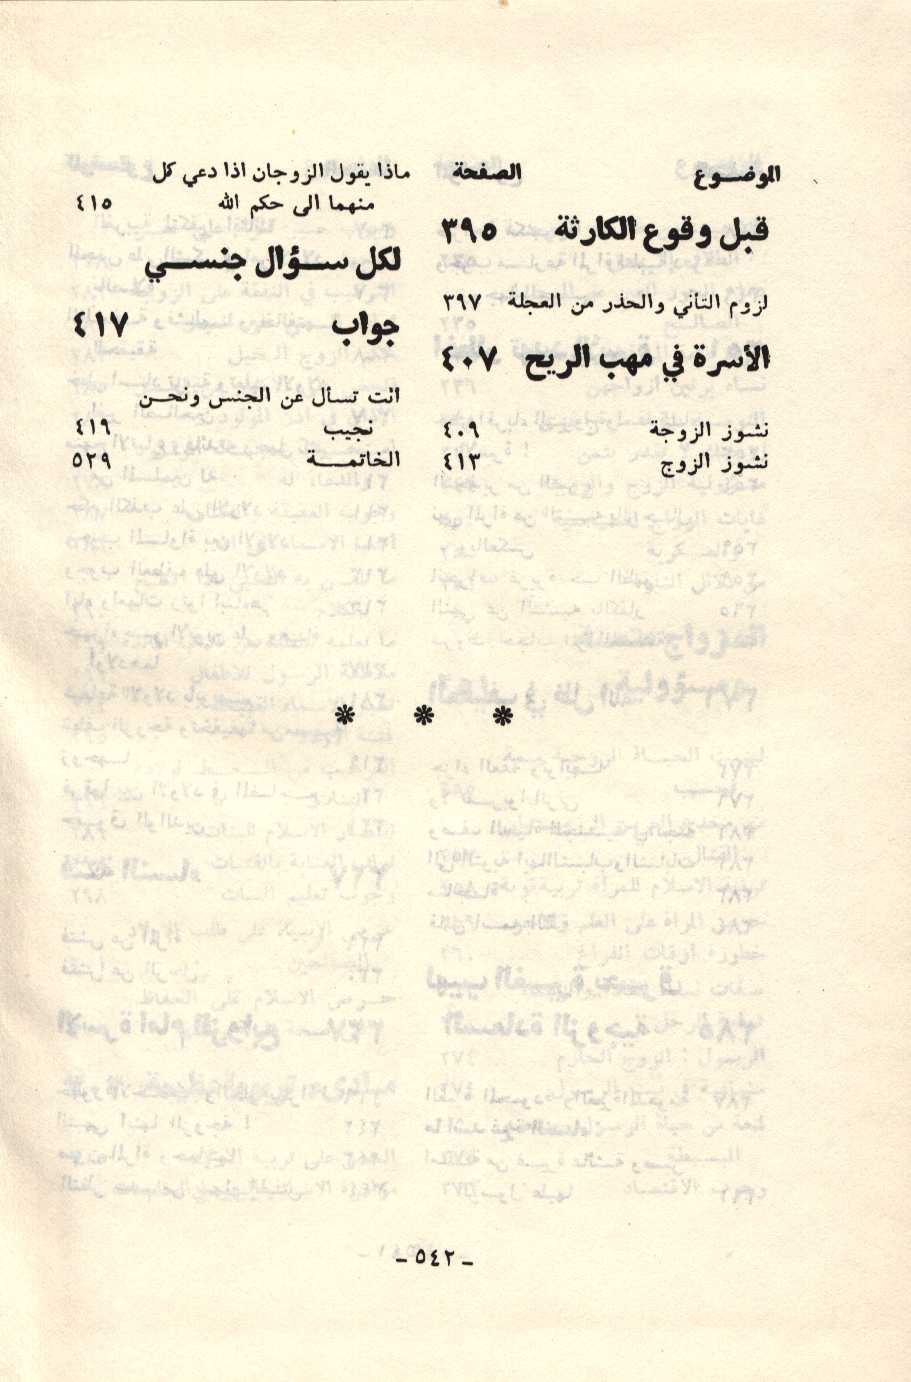 الموضــوع الصفحة
قبل وقوع الكارثة ٣٩٥
لزوم التأني والحذر من العجلة ٣٩٧
الأسرة في مهب الريح ٤٠٧
نشوز الزوجة ٤٠٩
نشوز الزوج ٤١٣
ماذا يقول الزوجان اذا دعي كل
منهما الى حكم الله ٤١٥
لكل ســؤال جنســي
جواب ٤١٧
انت تسأل عن الجنس ونحــن
نجيب ٤١٩
الخاتمــة ٥٢٩
* * *
ـ ٥٤٢ ـ